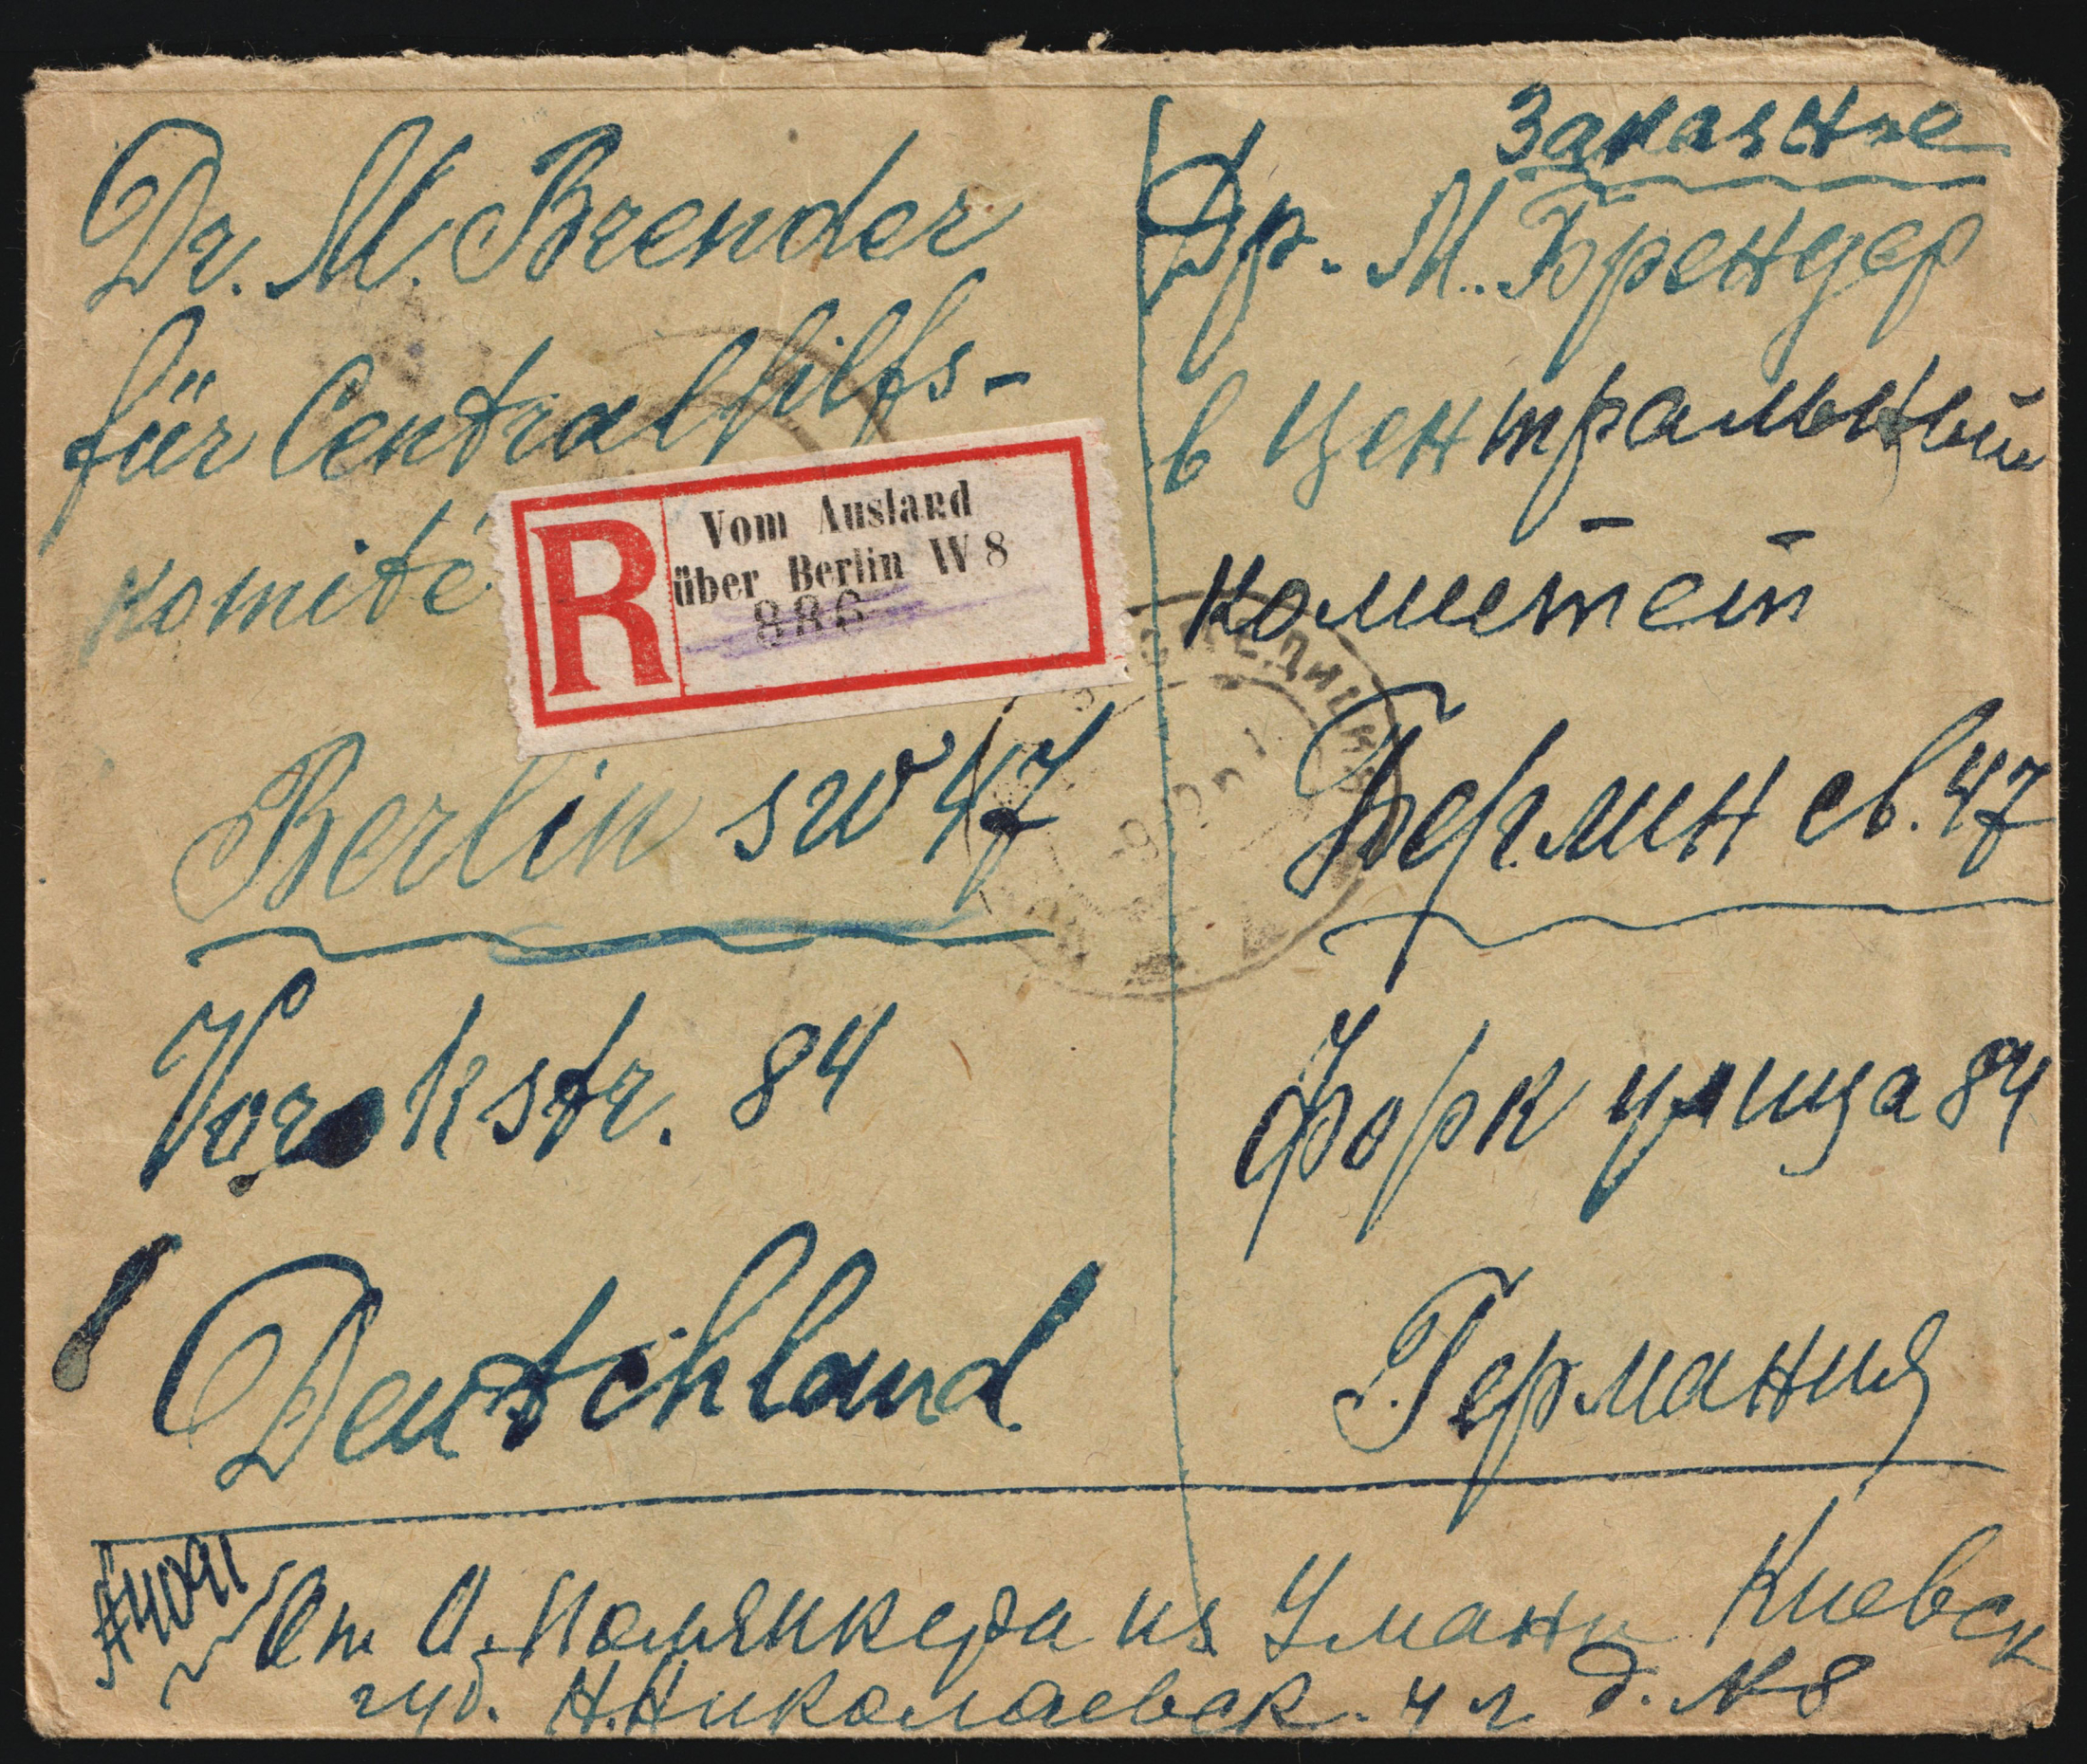 Dr. M. Brender
für Centralhilfs-
Komité
R
Vom Ausland
über Berlin W 8
886
Berlin sw 47
Yorkstr. 84
Deutschland
Заказное
Др. М. Брендер
в Центральный
комитет
Берлин св. 47
Форк улица 84
Германия
От из Умани Киевск
губ. Н. Николаевск. ул д. № 8